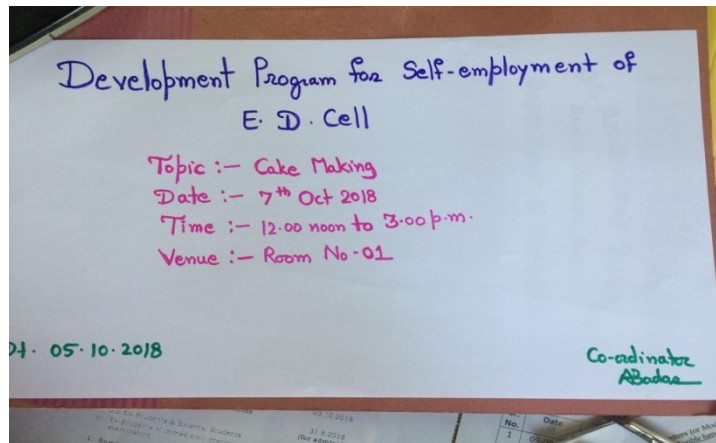 Development Program for Self-employment of
E. D. Cell
Topic :- Cake Making
Date :- 7th Oct 2018
Time :- 12.00 noon to 3.00 p.m.
Venue :- Room No-01
Dt. 05.10.2018
Co-ordinator
ABadar
03.10.2018
31.8.2018
No.
Date
1